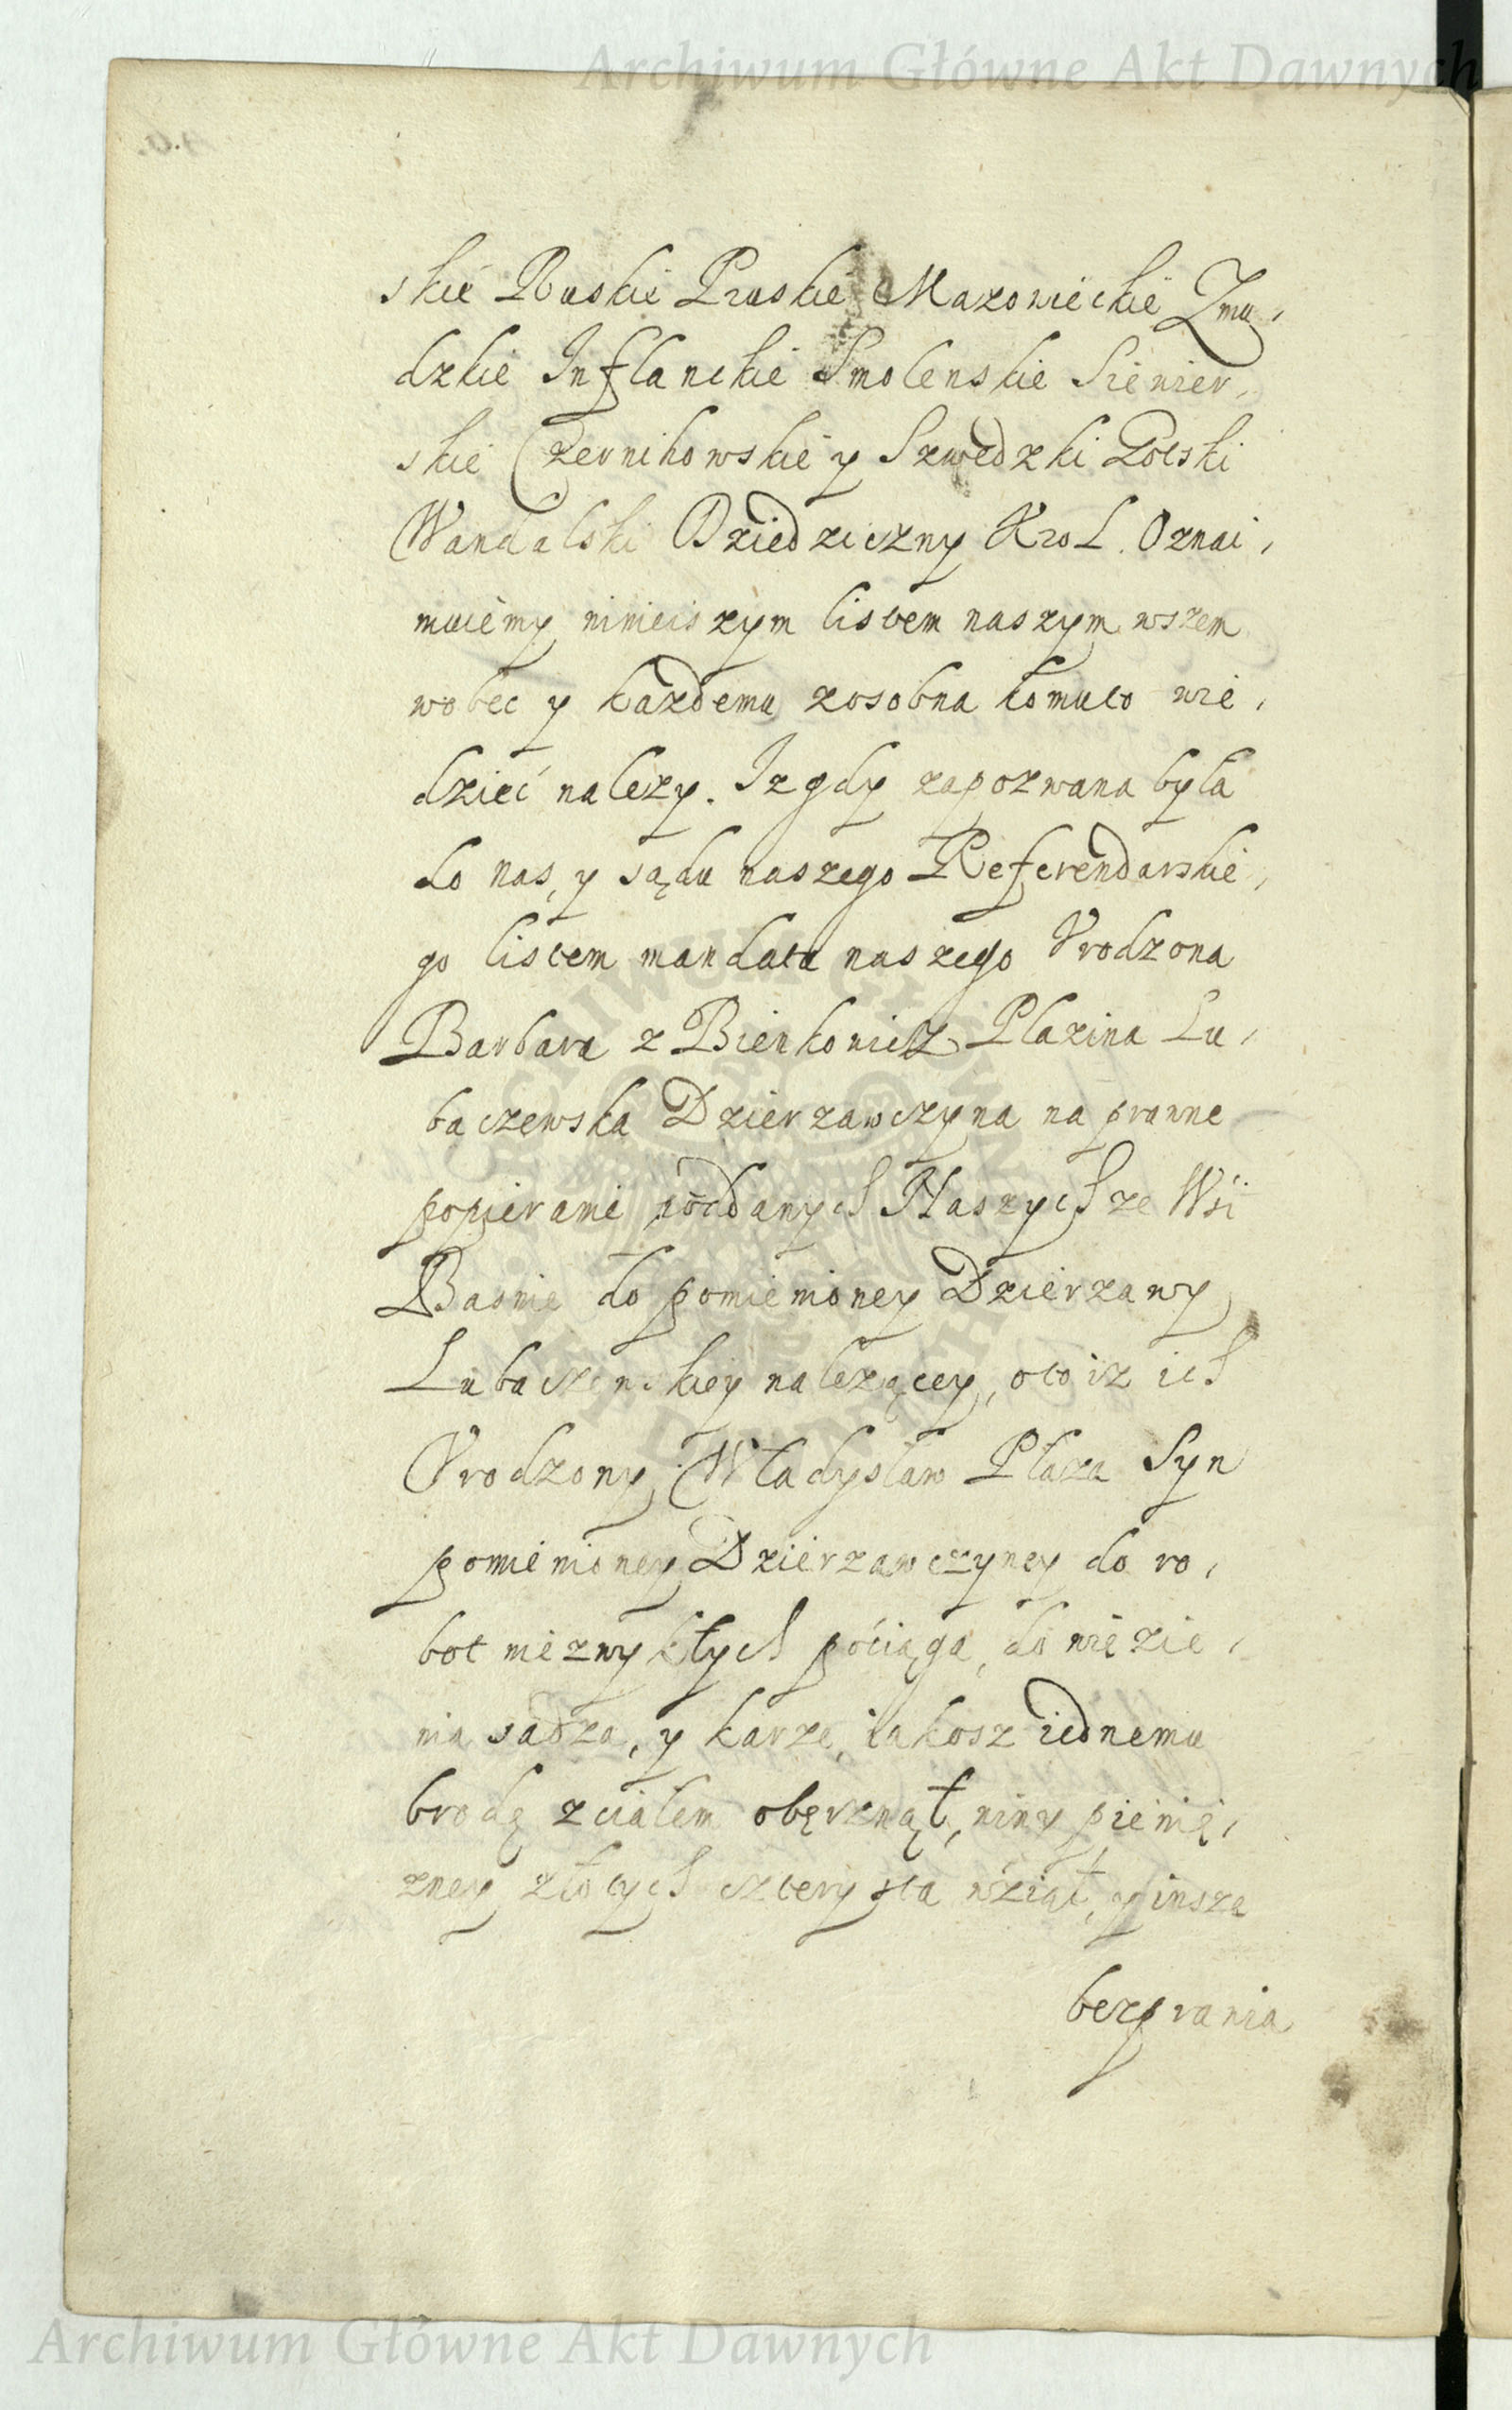 Archiwum Główne Akt Dawnych
skie Ruskie Pruskie Mazowieckie Zmu,
dzkie Inflanckie Smolenskie Siewier,
skie Czernikowskie y Szwedzki Gotski
Wandalski Dziedziczny Krol. Oznai,
muiemy ninieiszym listem naszym wszem
wobec y kazdemu zosobna komu to wie,
dzieć nalezy. Iz gdy zapozwana była
do nas, y sądu naszego Referendarskie,
go listem mandatu naszego Vrodzona
Barbara z Bienkowicz Plazina Lu,
baczewska Dzierzawczyna na prawne
popieranie poddanych Naszych ze Wśi
Basnie do pomienioney Dzierzawy
Lubaczewskiey nalezącey, oto iz ich
Vrodzony Władysław Płaza Syn
pomienioney Dzierzawczyney do ro,
bot niezwykłych pociąga, do więzie,
nia sadza, y karze, iakosz iednemu
brodę zciałem obęrznął, winy pienię,
zney złotych cztery sta wźiął, y insze
bezprawia
Archiwum Główne Akt Dawnych